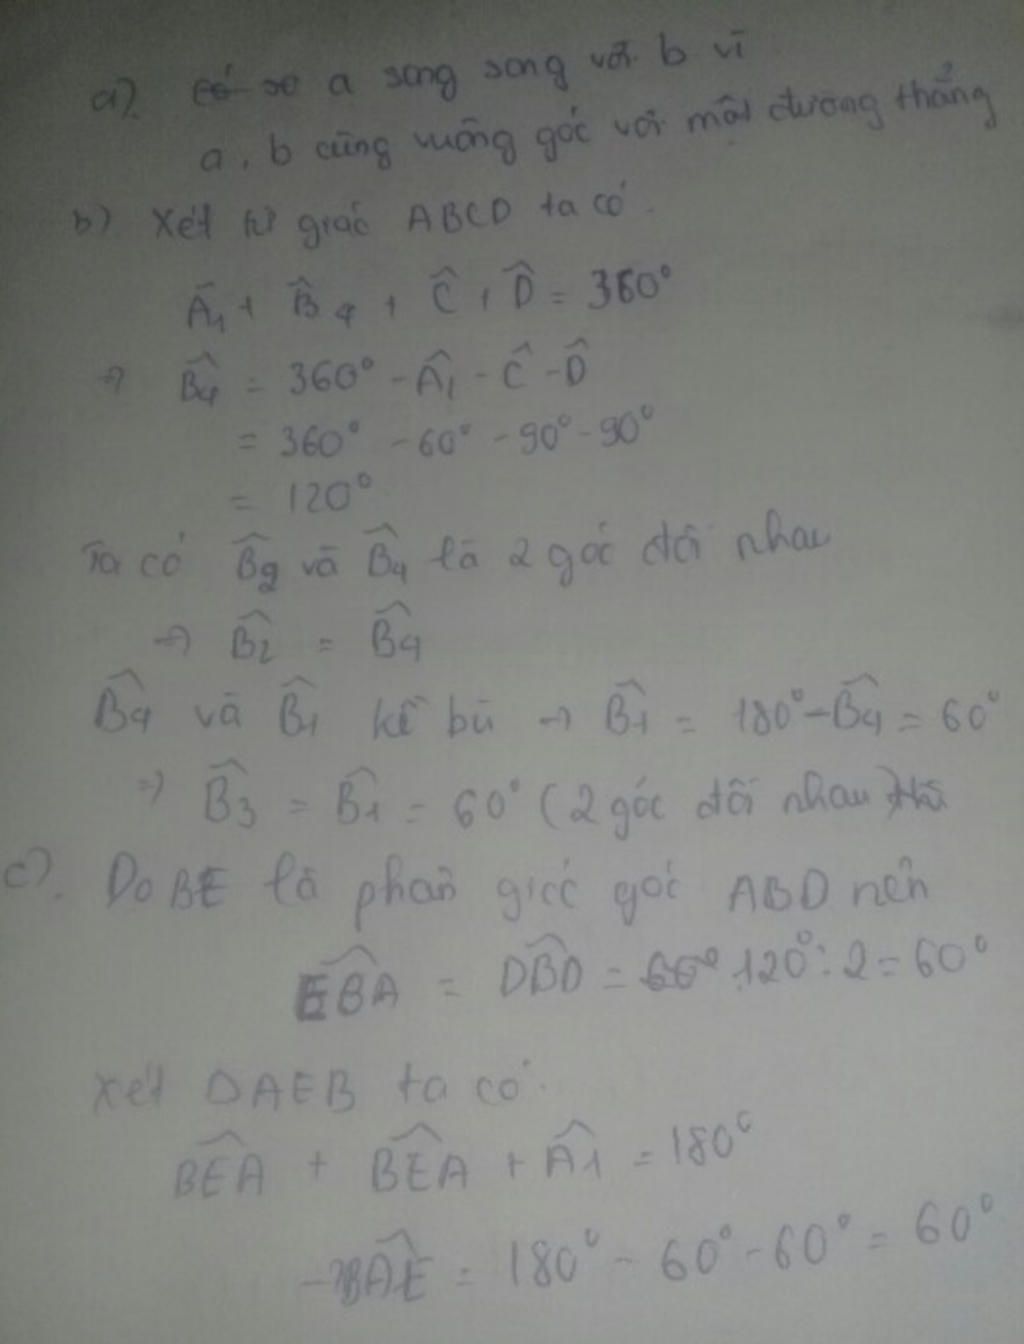 a). có so a song song với b vì
a, b cùng vuông góc với một đường thẳng
b) Xét tứ giác ABCD ta có.
Â₁ + B̂₄ + Ĉ + D̂ = 360°
=> B̂₄ = 360° - Â₁ - Ĉ - D̂
= 360° - 60° - 90° - 90°
= 120°
Ta có B̂₂ và B̂₄ là 2 góc đối nhau
=> B̂₂ = B̂₄
B̂₄ và B̂₁ kề bù => B̂₁ = 180° - B̂₄ = 60°
=> B̂₃ = B̂₁ = 60° (2 góc đối nhau)
c). Do BE là phân giác góc ABD nên
EBA = DBD = 60° 120° : 2 = 60°
Xét ΔAEB ta có.
BEA + BEA + Â₁ = 180°
BAE = 180° - 60° - 60° = 60°